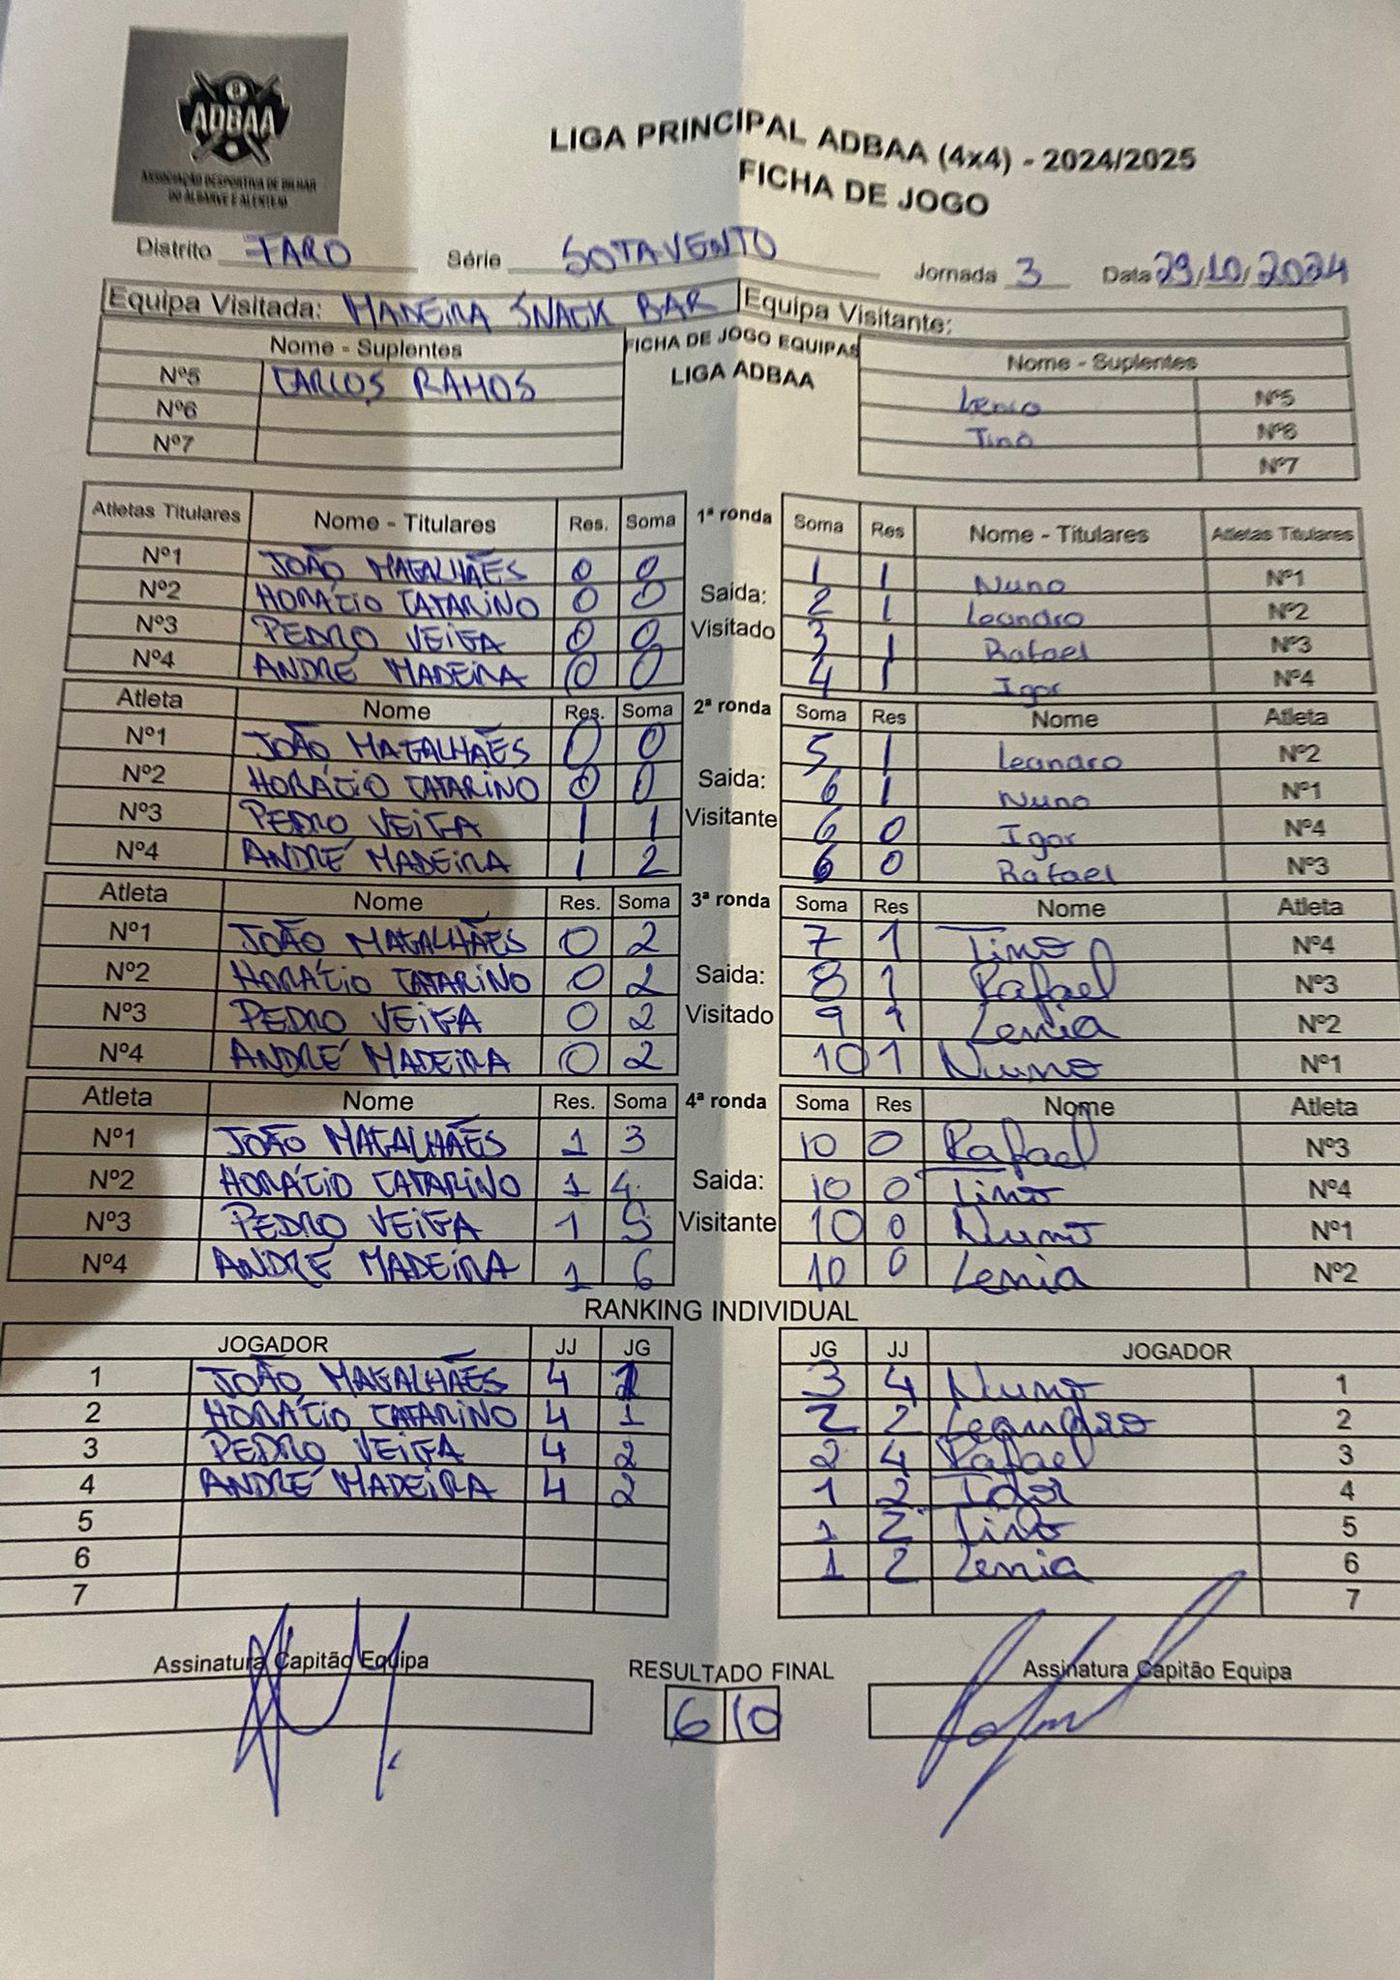 ADBAA
ASSOCIAÇÃO DESPORTIVA DE BILHAR
DO ALGARVE E ALENTEJO
LIGA PRINCIPAL ADBAA (4x4) - 2024/2025
FICHA DE JOGO
Distrito FARO Série SOTAVENTO Jornada 3 Data 29/10/2024
Equipa Visitada: MADEIRA SNACK BAR Equipa Visitante:
Nome - Suplentes FICHA DE JOGO EQUIPAS Nome - Suplentes
Nº5 CARLOS RAMOS LIGA ADBAA Lenio Nº5
Nº6 Tino Nº6
Nº7 Nº7
Atletas Titulares Nome - Titulares Res. Soma 1ª ronda Soma Res Nome - Titulares Atletas Titulares
Nº1 JOÃO MAGALHÃES 0 0 1 1 Nuno Nº1
Nº2 HORÁCIO CATARINO 0 0 Saida: 2 1 Leandro Nº2
Nº3 PEDRO VEIGA 0 0 Visitado 3 1 Rafael Nº3
Nº4 ANDRÉ MADEIRA 0 0 4 1 Igor Nº4
Atleta Nome Res. Soma 2ª ronda Soma Res Nome Atleta
Nº1 JOÃO MAGALHÃES 0 0 5 1 Leandro Nº2
Nº2 HORÁCIO CATARINO 0 0 Saida: 6 1 Nuno Nº1
Nº3 PEDRO VEIGA 1 1 Visitante 6 0 Igor Nº4
Nº4 ANDRÉ MADEIRA 1 2 6 0 Rafael Nº3
Atleta Nome Res. Soma 3ª ronda Soma Res Nome Atleta
Nº1 JOÃO MAGALHÃES 0 2 7 1 Tino Nº4
Nº2 HORÁCIO CATARINO 0 2 Saida: 8 1 Rafael Nº3
Nº3 PEDRO VEIGA 0 2 Visitado 9 1 Lenia Nº2
Nº4 ANDRÉ MADEIRA 0 2 10 1 Nuno Nº1
Atleta Nome Res. Soma 4ª ronda Soma Res Nome Atleta
Nº1 JOÃO MAGALHÃES 1 3 10 0 Rafael Nº3
Nº2 HORÁCIO CATARINO 1 4 Saida: 10 0 Tino Nº4
Nº3 PEDRO VEIGA 1 5 Visitante 10 0 Nuno Nº1
Nº4 ANDRÉ MADEIRA 1 6 10 0 Lenia Nº2
RANKING INDIVIDUAL
JOGADOR JJ JG JG JJ JOGADOR
1 JOÃO MAGALHÃES 4 1 3 4 Nuno 1
2 HORÁCIO CATARINO 4 1 2 2 Leandro 2
3 PEDRO VEIGA 4 2 2 4 Rafael 3
4 ANDRÉ MADEIRA 4 2 1 2 Igor 4
5 1 2 Tino 5
6 1 2 Lenia 6
7 7
Assinatura Capitão Equipa RESULTADO FINAL Assinatura Capitão Equipa
6 10